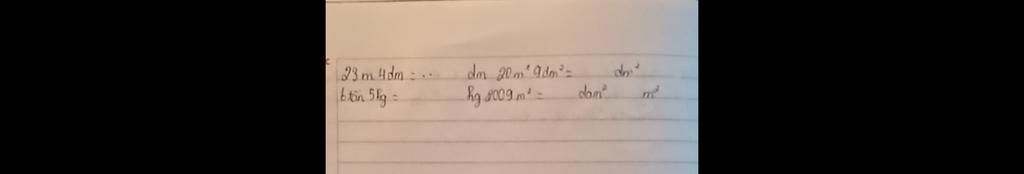 23m 4dm = .. dm 20m² 9dm² = dm²
6 tấn 5kg = kg 2009m² = dam² m²